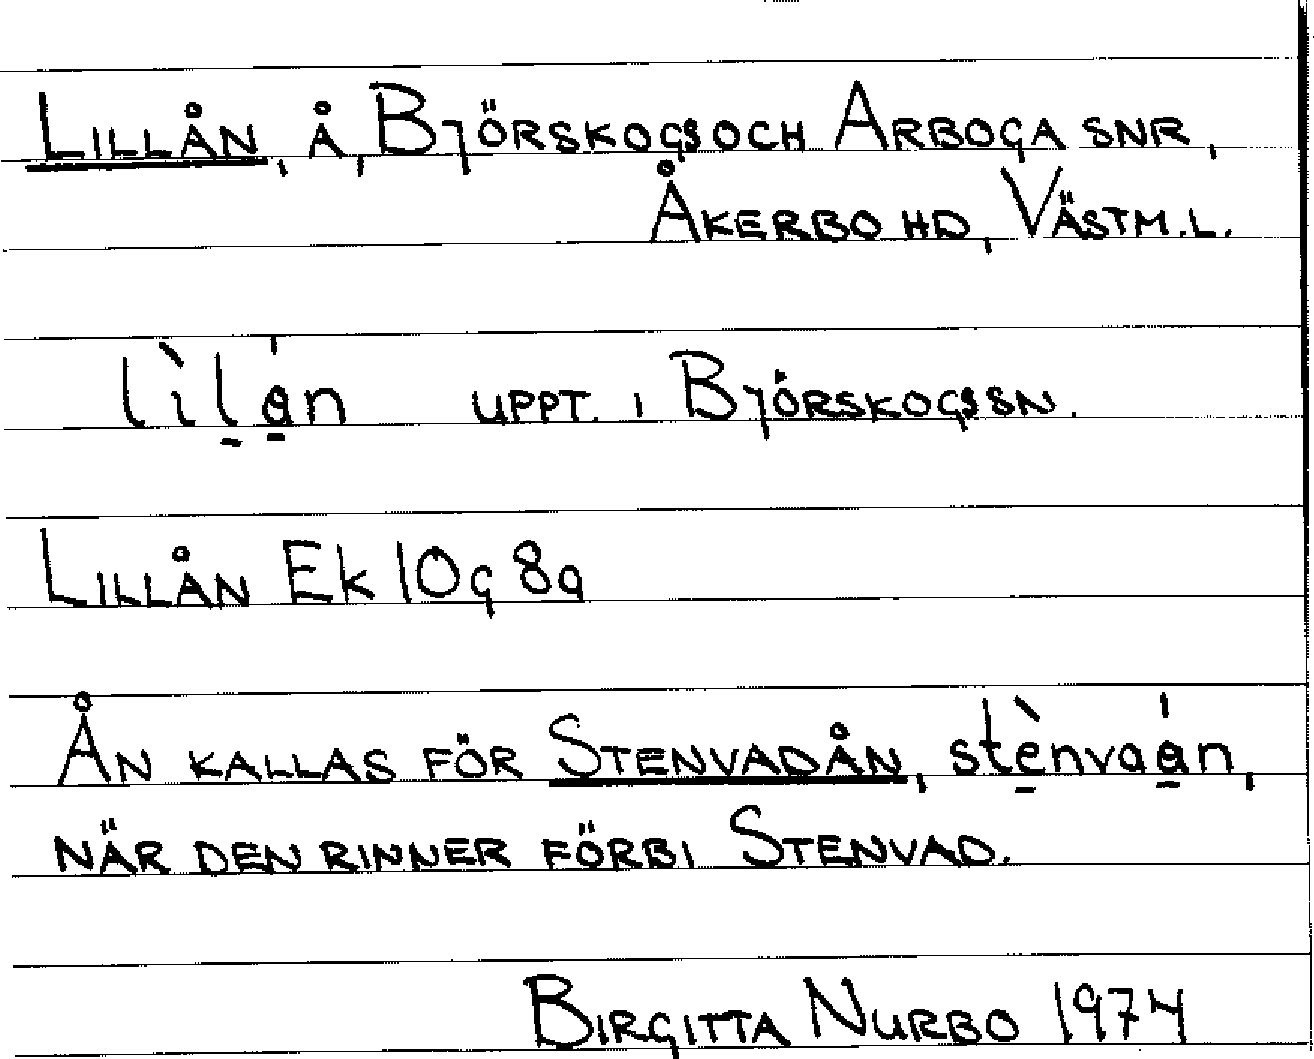 LILLÅN, Å, BJÖRSKOGS OCH ARBOGA SNR,
ÅKERBO HD, VÄSTM.L.
lìl̠ǻ̠n UPPT. I BJÖRSKOGS SN.
LILLÅN Ek 10g 8a
ÅN KALLAS FÖR STENVADÅN, stè̠nvaǻ̠n,
NÄR DEN RINNER FÖRBI STENVAD.
BIRGITTA NURBO 1974